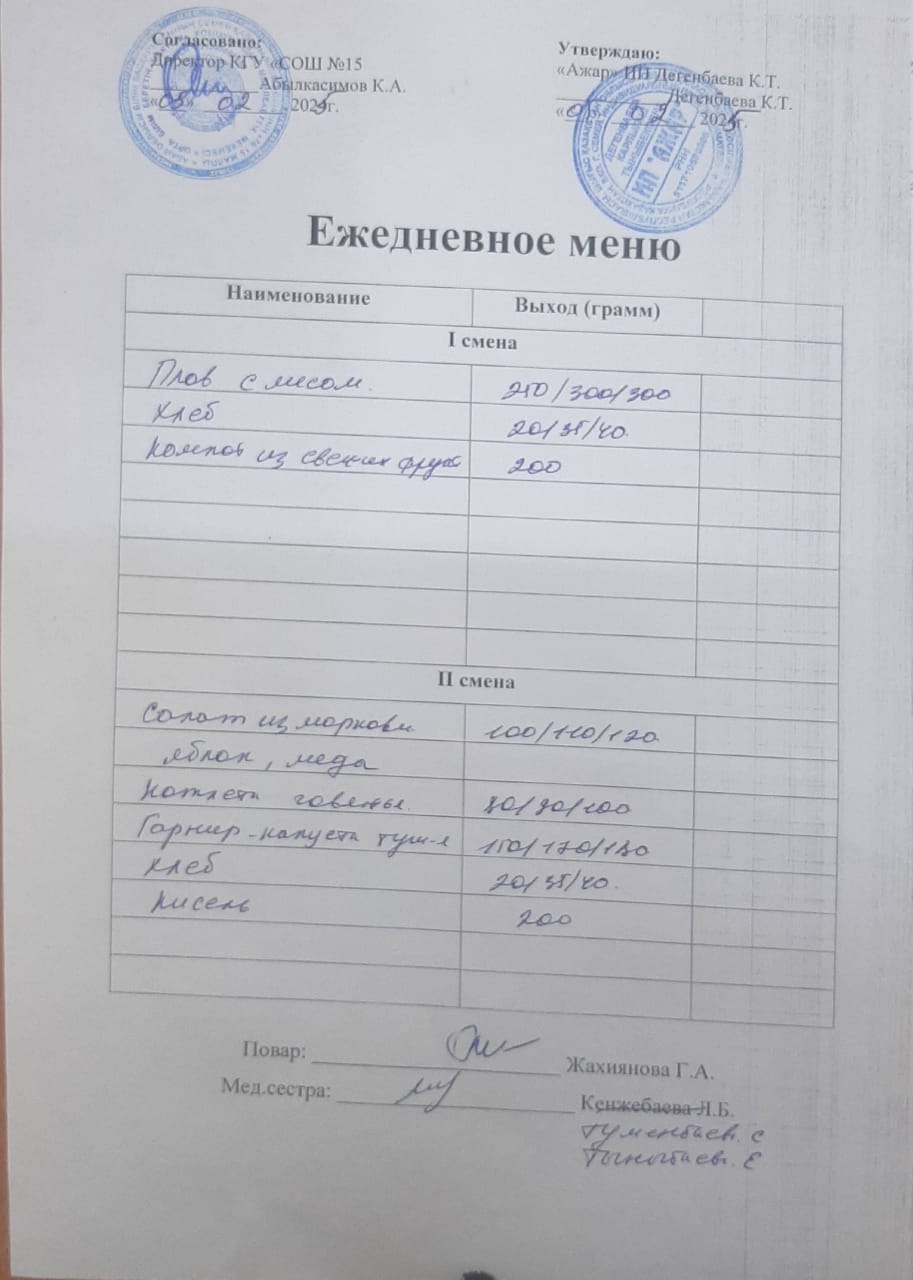 Согласовано:
Директор КГУ «СОШ №15
Абылкасимов К.А.
«05» 02 2025г.
Утверждаю:
«Ажар» ИП Дегенбаева К.Т.
Дегенбаева К.Т.
«05» 02 2025г.
ИП "АЖАР"
Ежедневное меню
Наименование Выход (грамм)
I смена
Плов с мясом. 250/300/300
Хлеб 20/35/40.
Компот из свежих фрукт 200
II смена
Салат из моркови 100/110/120
яблок, меда
Котлета говяжья. 80/90/100
Гарнир-капуста туш-я 150/170/180
Хлеб 20/35/40.
Кисель 200
Повар: Жахиянова Г.А.
Мед.сестра: Кенжебаева Л.Б.
Туменбаев. С
Тыныбаев. Е